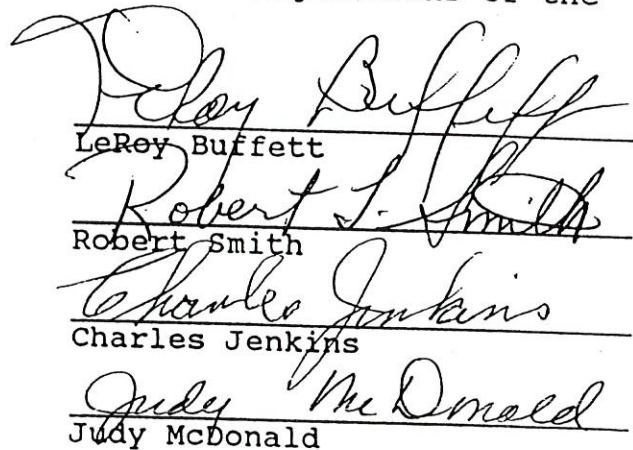 of the
LeRoy Buffett
LeRoy Buffett
Robert L. Smith
Robert Smith
Charles Jenkins
Charles Jenkins
Judy McDonald
Judy McDonald